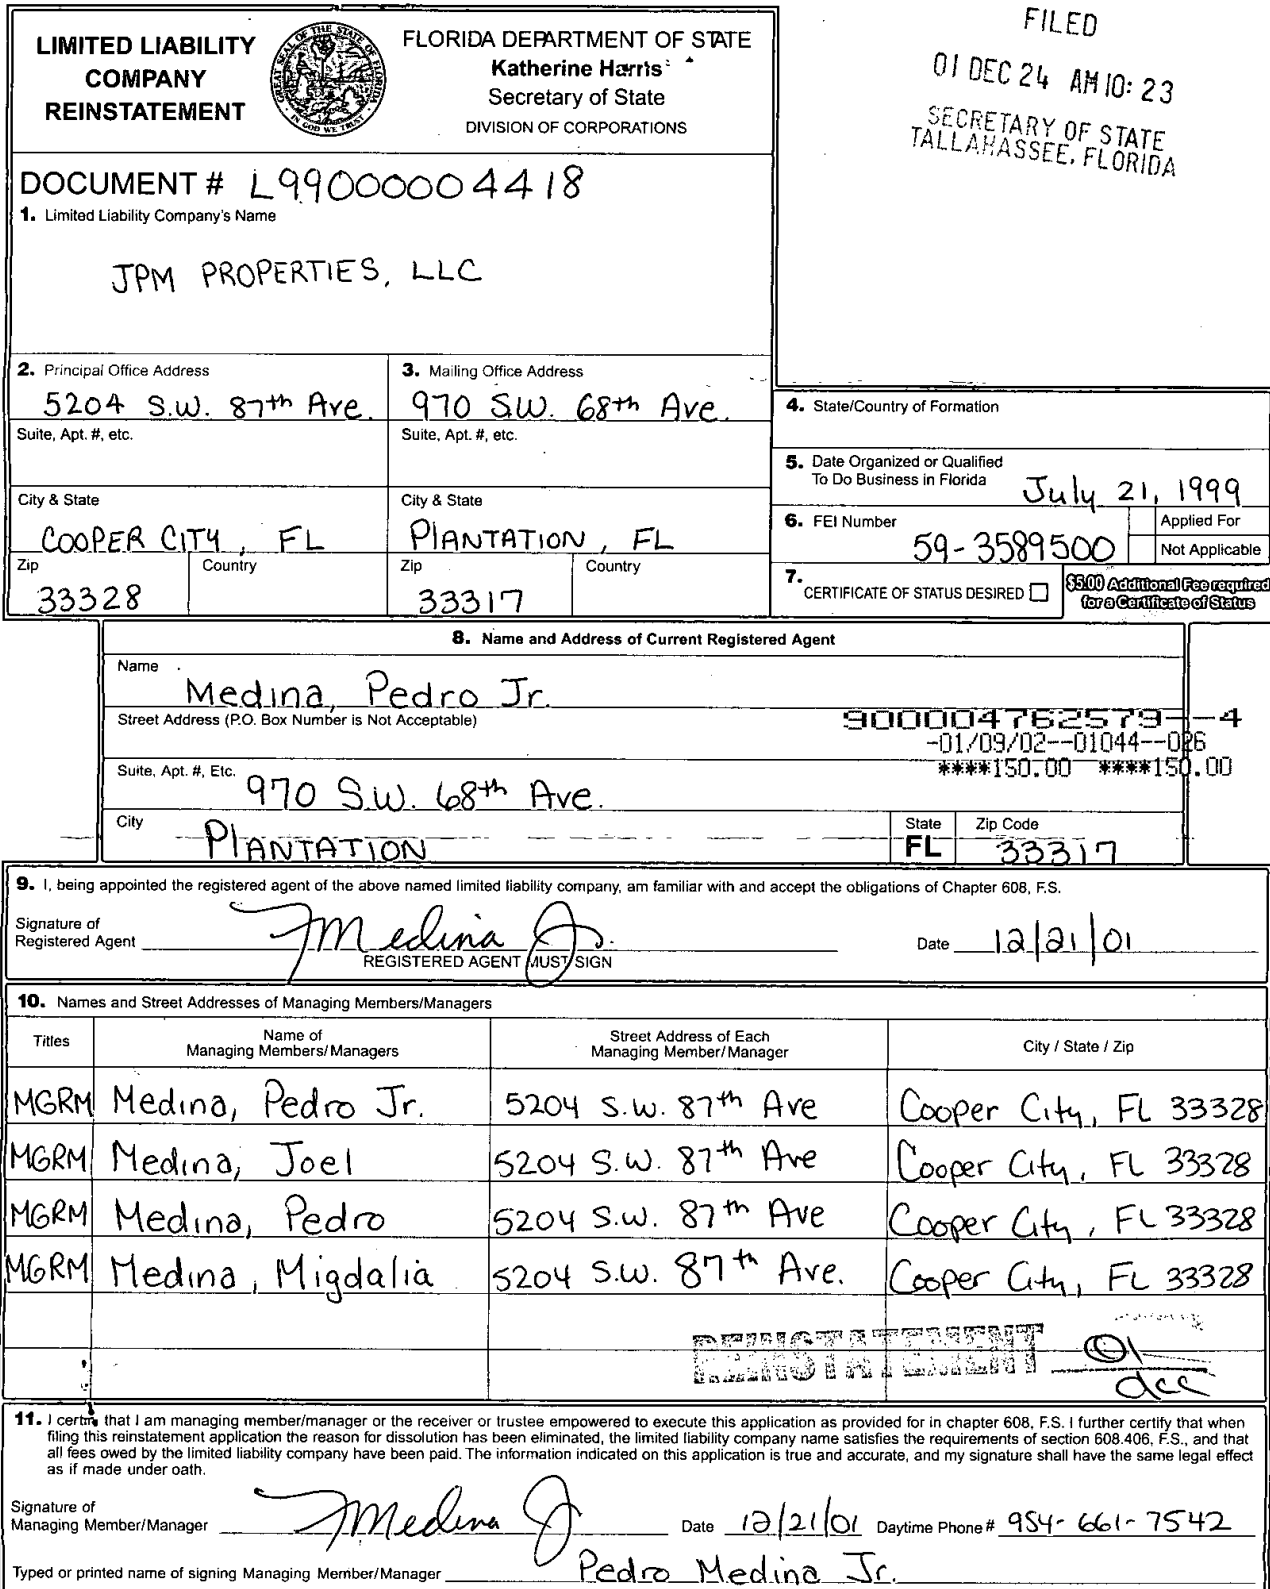 LIMITED LIABILITY
COMPANY
REINSTATEMENT
GREAT SEAL OF THE STATE OF FLORIDA
IN GOD WE TRUST
FLORIDA DEPARTMENT OF STATE
Katherine Harris
Secretary of State
DIVISION OF CORPORATIONS
FILED
01 DEC 24 AM 10: 23
SECRETARY OF STATE
TALLAHASSEE, FLORIDA
DOCUMENT # L99000004418
1. Limited Liability Company's Name
JPM PROPERTIES, LLC
2. Principal Office Address
5204 S.W. 87th Ave.
Suite, Apt. #, etc.
City & State
COOPER CITY, FL
Zip
33328
Country
3. Mailing Office Address
970 S.W. 68th Ave.
Suite, Apt. #, etc.
City & State
PlANTATION, FL
Zip
33317
Country
4. State/Country of Formation
5. Date Organized or Qualified
To Do Business in Florida
July 21, 1999
6. FEI Number
59-3589500
Applied For
Not Applicable
7. CERTIFICATE OF STATUS DESIRED
$5.00 Additional Fee required
for a Certificate of Status
8. Name and Address of Current Registered Agent
Name
Medina, Pedro Jr.
Street Address (P.O. Box Number is Not Acceptable)
900004762579--4
-01/09/02--01044--026
****150.00 ****150.00
Suite, Apt. #, Etc.
970 S.W. 68th Ave.
City
PlANTATION
State
FL
Zip Code
33317
9. I, being appointed the registered agent of the above named limited liability company, am familiar with and accept the obligations of Chapter 608, F.S.
Signature of
Registered Agent
Medina Jr.
REGISTERED AGENT MUST SIGN
Date 12/21/01
10. Names and Street Addresses of Managing Members/Managers
Titles
Name of
Managing Members/Managers
Street Address of Each
Managing Member/Manager
City / State / Zip
MGRM Medina, Pedro Jr. 5204 S.W. 87th Ave Cooper City, FL 33328
MGRM Medina, Joel 5204 S.W. 87th Ave Cooper City, FL 33328
MGRM Medina, Pedro 5204 S.W. 87th Ave Cooper City, FL 33328
MGRM Medina, Migdalia 5204 S.W. 87th Ave. Cooper City, FL 33328
REINSTATEMENT 01
dcc
11. I certify that I am managing member/manager or the receiver or trustee empowered to execute this application as provided for in chapter 608, F.S. I further certify that when
filing this reinstatement application the reason for dissolution has been eliminated, the limited liability company name satisfies the requirements of section 608.406, F.S., and that
all fees owed by the limited liability company have been paid. The information indicated on this application is true and accurate, and my signature shall have the same legal effect
as if made under oath.
Signature of
Managing Member/Manager
Medina J
Date 12/21/01 Daytime Phone # 954-661-7542
Typed or printed name of signing Managing Member/Manager Pedro Medina Jr.